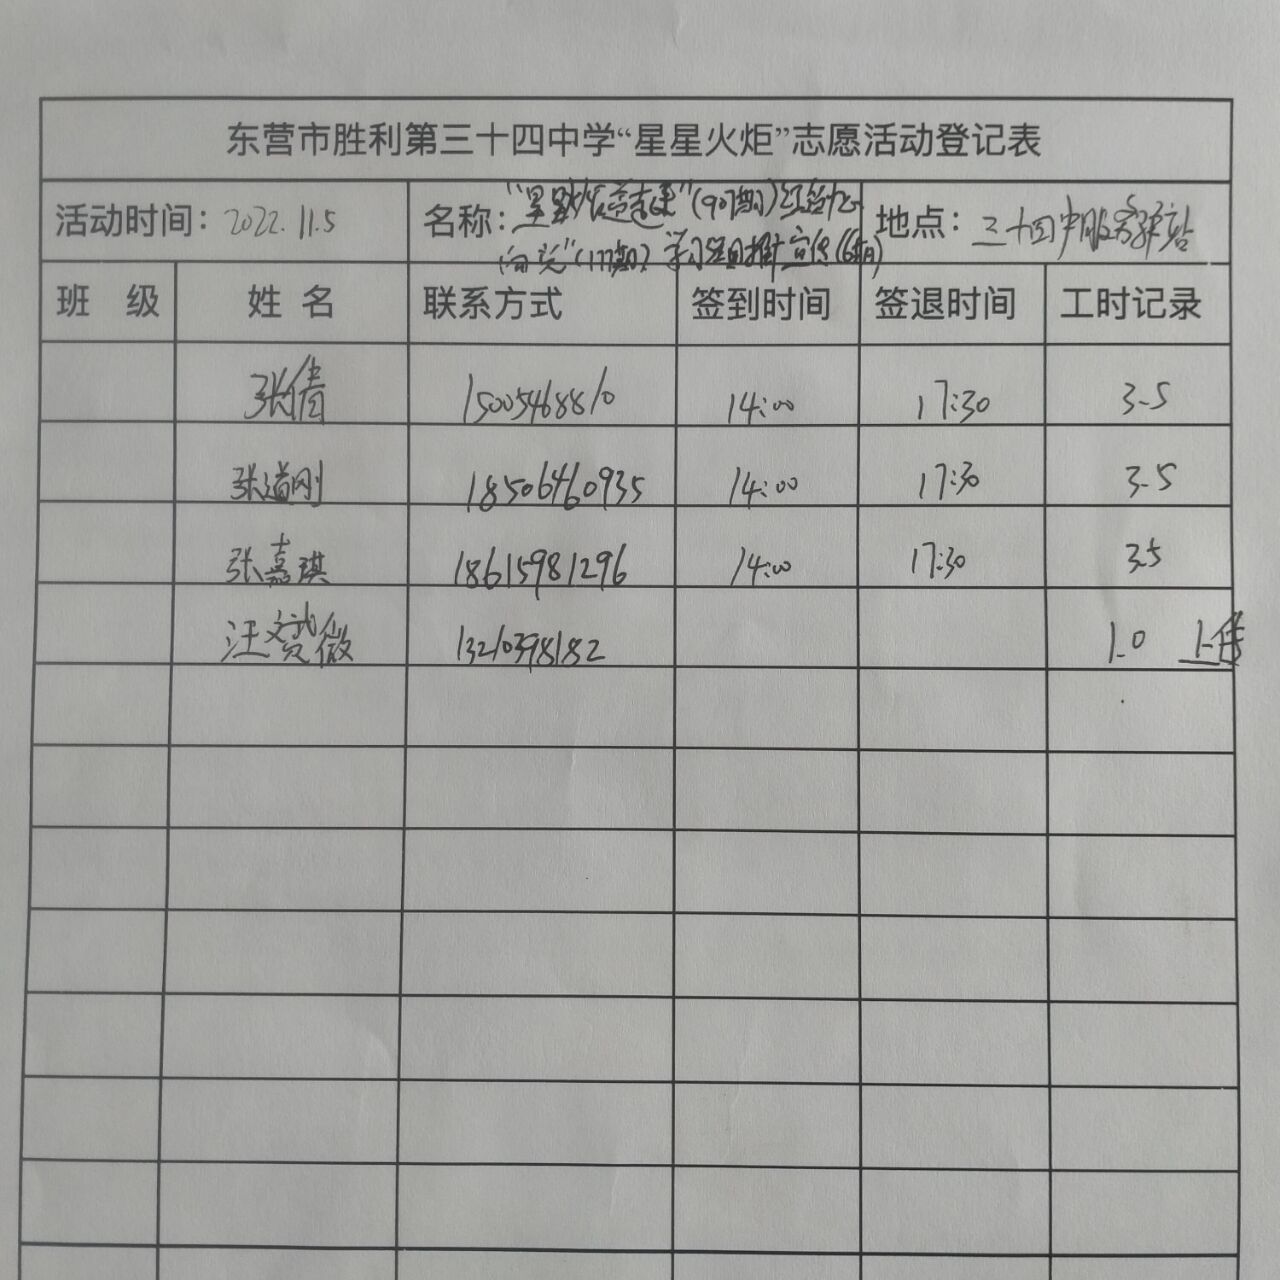 东营市胜利第三十四中学“星星火炬”志愿活动登记表
活动时间：2022.11.5 名称：“星星火炬 (907期) 地点：三十四中服务驿站
(177期) 学习 宣传(6期)
班 级 姓 名 联系方式 签到时间 签退时间 工时记录
张倩 15005468810 14:00 17:30 3.5
张道刚 18506460935 14:00 17:30 3.5
张嘉琪 18615981296 14:00 17:30 3.5
汪赟薇 13210398182 1.0 上传